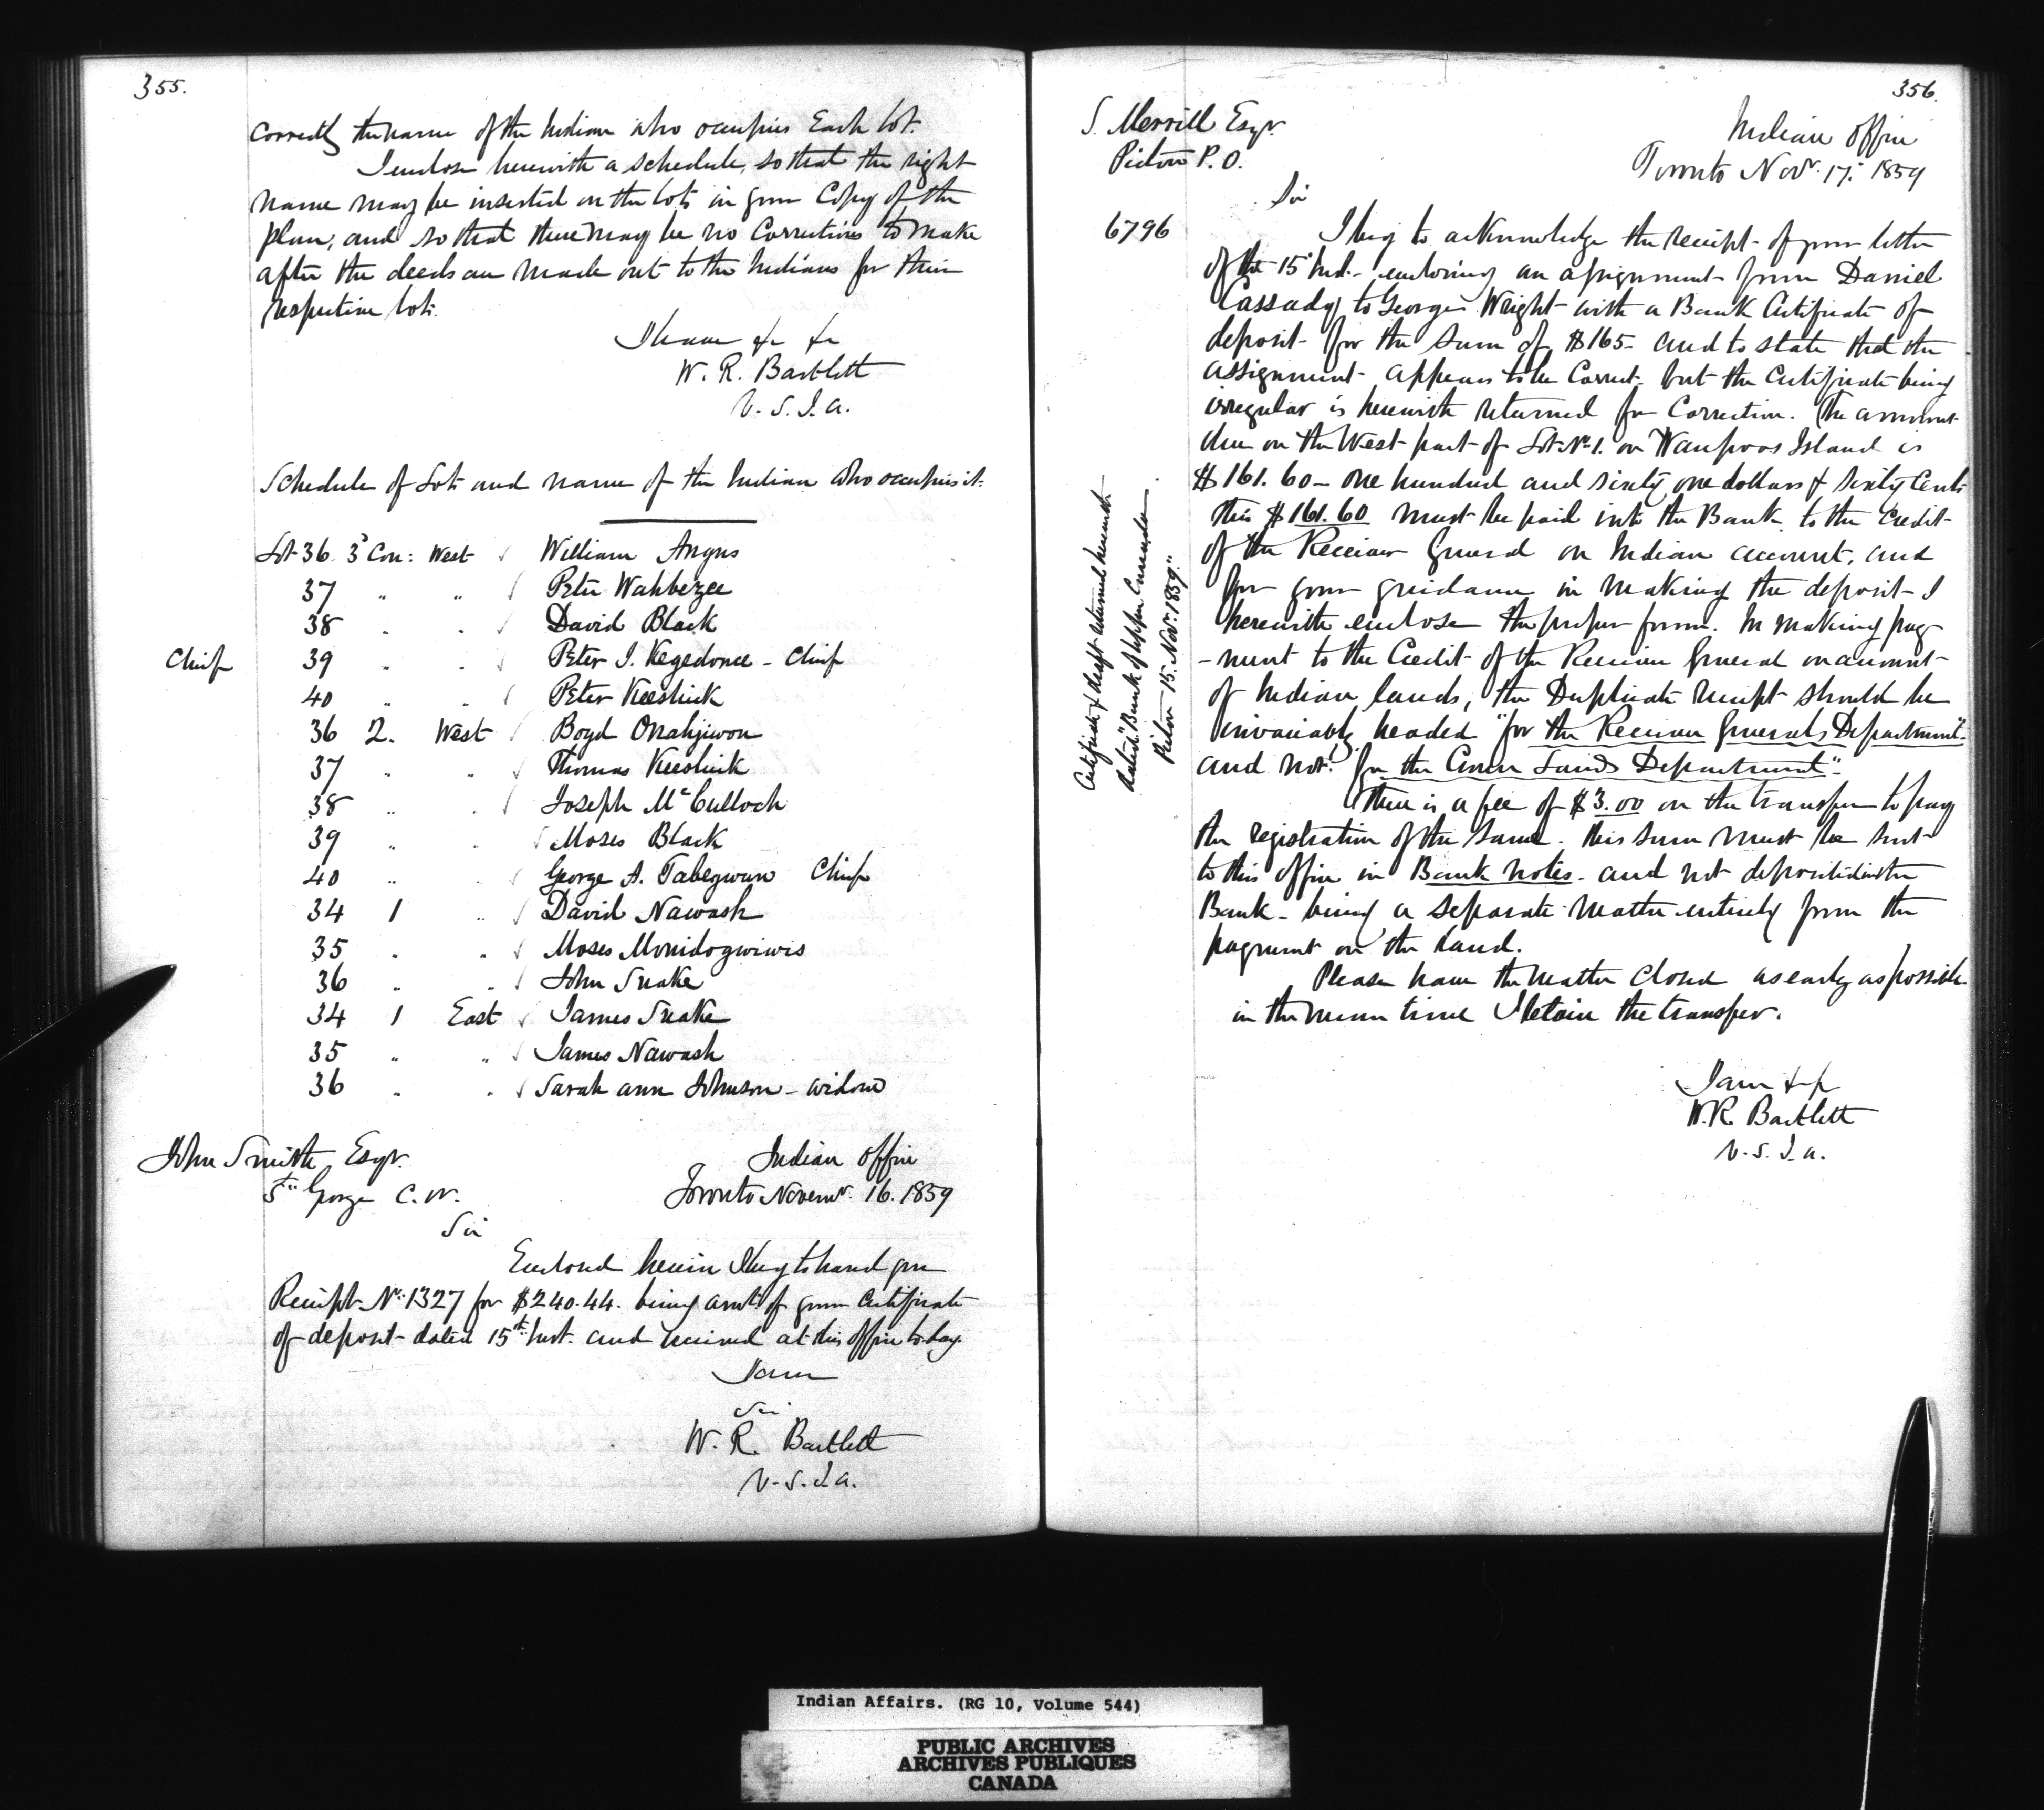 355.
correctly the name of the Indian who occupies Each lot.
I enclose herewith a schedule, so that the right
name may be inserted on the lots in your Copy of the
plan, and so that there may be no Corrections to make
after the deeds are made out to the Indians for their
respective lots.
I have &c &c
W. R. Bartlett
V. S. I. A.
Schedule of Lots and name of the Indian who occupies it.
Lot 36. 3 Con: West William Angus
37 " " Peter Wahbezee
38 " " David Black
Chief 39 " " Peter J. Kegedonce - Chief
40 " " Peter Keeshick
36 2. West Boyd Onahjiwon
37 " " Thomas Keeshick
38 " " Joseph McCulloch
39 " " Moses Black
40 " " George A. Tabegwun Chief
34 1 " David Nawash
35 " " Moses Monidogwiwis
36 " " John Snake
34 1 East James Snake
35 " " James Nawash
36 " " Sarah ann Johnson - widow
John Smith Esqr.
St. George C. W.
Indian Office
Toronto Novemr. 16. 1859
Sir
Enclosed herein I beg to hand you
Receipt No. 1327 for $240.44. being amt of your Certificate
of deposit dated 15th Inst. and received at this office to day.
I am
Sir
W. R. Bartlett
V. S. I. A.
356.
S. Merrill Esqr.
Picton P. O.
Indian Office
Toronto Novr. 17. 1859
Sir
6796
I beg to acknowledge the receipt of your letter
of the 15 Inst. enclosing an assignment from Daniel
Cassady to George Wright with a Bank Certificate of
deposit for the Sum of $165 - and to state that the
assignment appears to be Correct. but the Certificate being
irregular is herewith returned for Correction. The amount
due on the West part of Lot No. 1. on Waupoos Island is
$161.60 - one hundred and sixty one dollars & sixty Cents
this $161.60 must be paid into the Bank to the Credit
of the Receiver General on Indian account, and
for your guidance in making the deposit I
herewith enclose the proper form. In making pay
-ment to the Credit of the Receiver General on account
of Indian lands, the Duplicate receipt should be
invariably headed "for the Receiver Generals Department"
and not "for the Crown Lands Department".
There is a fee of $3.00 on the transfer to pay
the registration of the same. this sum must be sent
to this office in Bank notes - and not deposited in the
Bank - being a separate matter entirely from the
payment on the Land.
Please have the matter Closed as early as possible
in the mean time I retain the transfer.
I am &c
W. R. Bartlett
V. S. I. A.
Certificate of draft returned herewith
dated "Bank of Upper Canada
Picton 15. Nov. 1859."
Indian Affairs. (RG 10, Volume 544)
PUBLIC ARCHIVES
ARCHIVES PUBLIQUES
CANADA